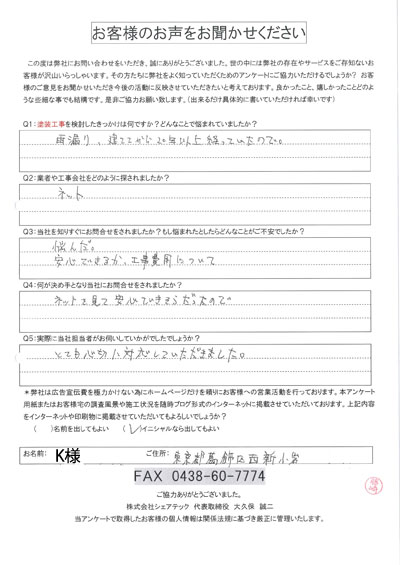 お客様のお声をお聞かせください
この度は弊社にお問い合わせをいただき、誠にありがとうございました。世の中には弊社の存在やサービスをご存知ないお
客様が沢山いらっしゃいます。その方たちに弊社をよく知っていただくためのアンケートにご協力いただけるでしょうか？ お客
様のご意見をお聞かせいただき今後の活動に反映させていただきたいと考えております。良かったこと、嬉しかったことどのよ
うな些細な事でも結構です。是非ご協力お願い致します。（出来るだけ具体的に書いていただければ幸いです）
Q1：塗装工事を検討したきっかけは何ですか？どんなことで悩まれていましたか？
雨漏り、建ててから20年以上経っていたので。
Q2：業者や工事会社をどのように探されましたか？
ネット
Q3：当社を知りすぐにお問合せをされましたか？もし悩まれたとしたらどんなことがご不安でしたか？
悩んだ。
安心できるか、工事費用について
Q4：何が決め手となり当社にお問合せをされましたか？
ネットを見て安心できそうだったので
Q5：実際に当社担当者がお伺いしていかがでしたでしょうか？
とても心切に対応していただきました。
＊弊社は広告宣伝費を極力かけない為にホームページだけを頼りにお客様への営業活動を行っております。本アンケート
用紙またはお客様宅の調査風景や施工状況を随時ブログ形式のインターネットに掲載させていただいております。上記内容
をインターネットや印刷物に掲載させていただいてもよろしいでしょうか？
（　）名前を出してもよい　（✓）イニシャルなら出してもよい
お名前： K様 ご住所： 東京都葛飾区西新小岩
FAX 0438-60-7774
ご協力ありがとうございました。
株式会社シェアテック 代表取締役 大久保 誠二
当アンケートで取得したお客様の個人情報は関係法規に基づき厳正に管理いたします。